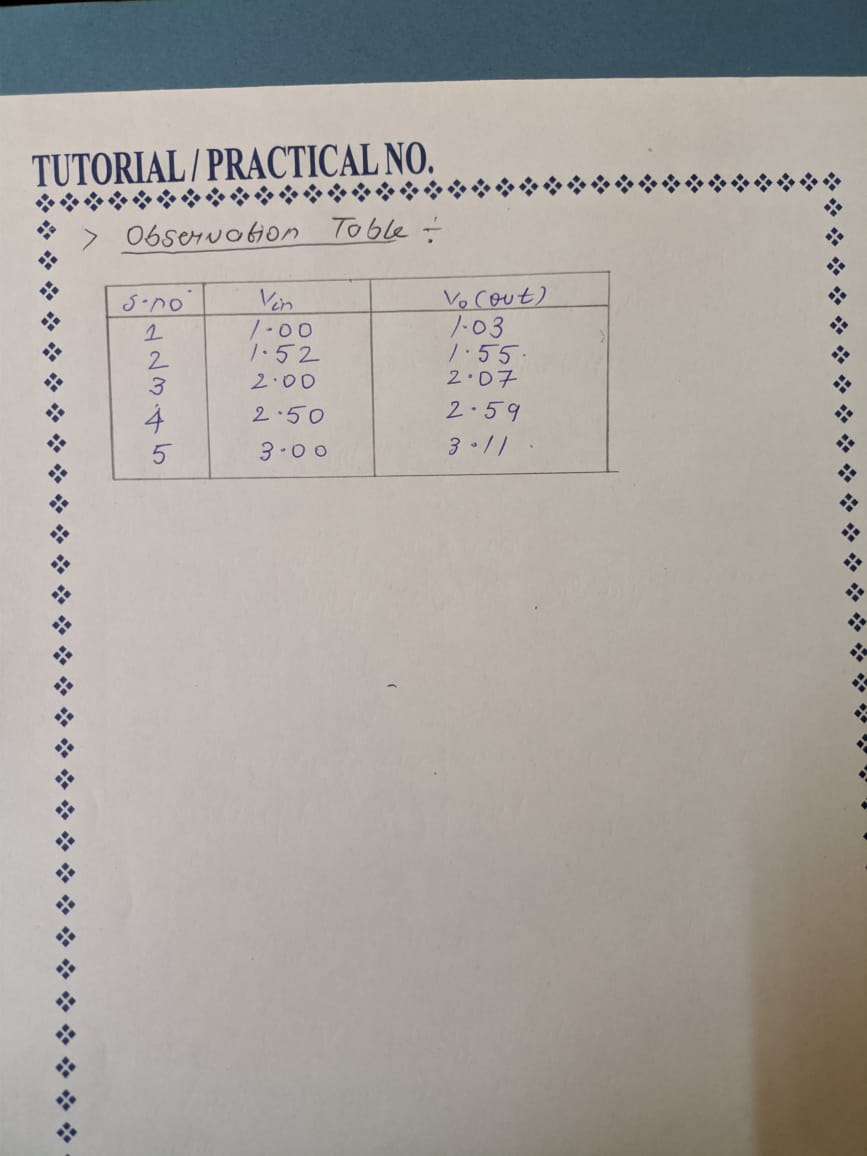 TUTORIAL / PRACTICAL NO.
> Observation Table ÷
S.no Vin Vo (out)
1 1.00 1.03
2 1.52 1.55
3 2.00 2.07
4 2.50 2.59
5 3.00 3.11